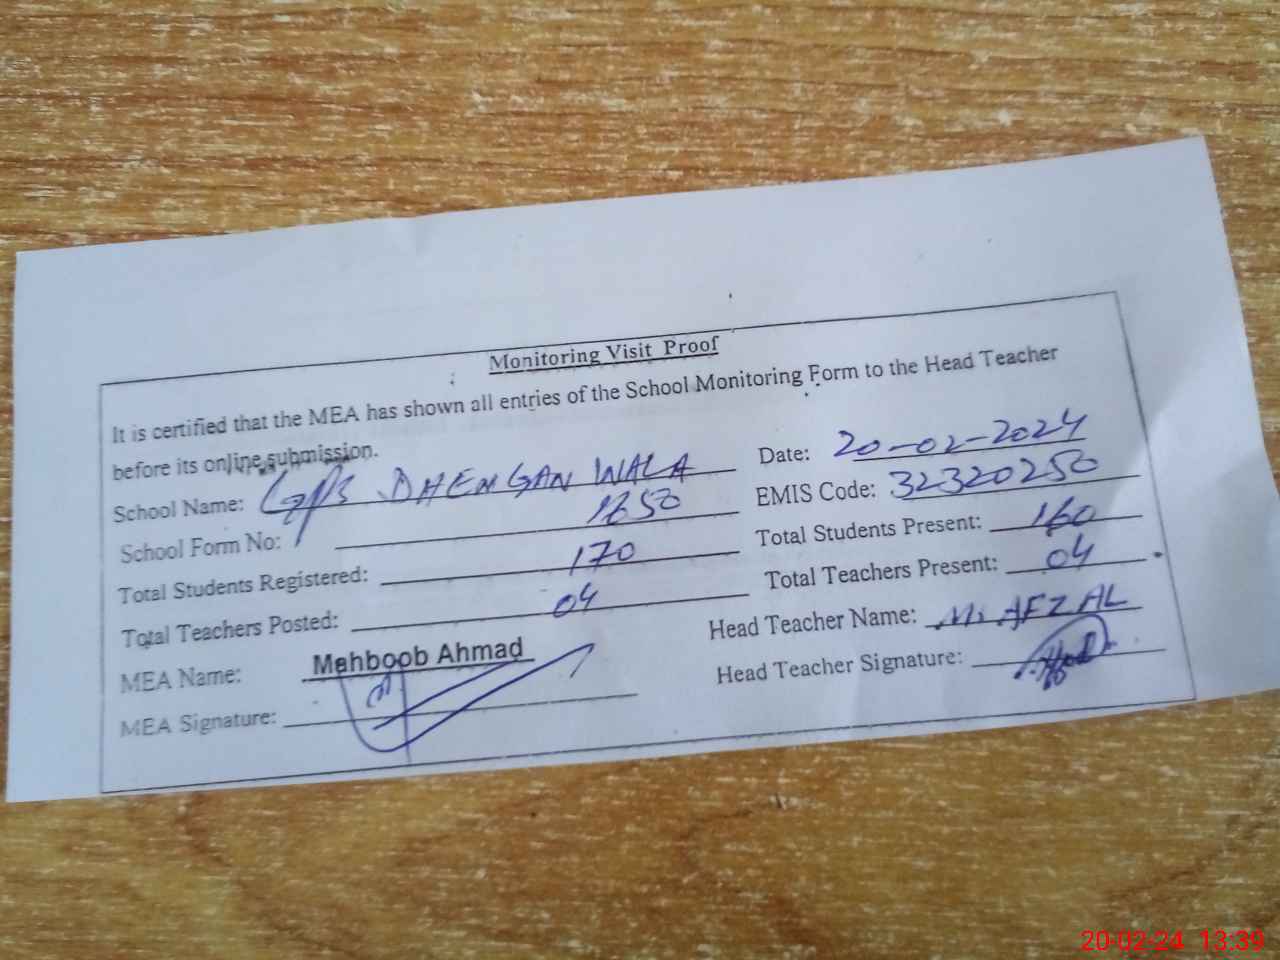 Monitoring Visit Proof
It is certified that the MEA has shown all entries of the School Monitoring Form to the Head Teacher
before its online submission.
School Name: G/P/S DHEMGAN WALA Date: 20-02-2024
School Form No: 1650 EMIS Code: 32320250
Total Students Registered: 170 Total Students Present: 160
Total Teachers Posted: 04 Total Teachers Present: 04
MEA Name: Mehboob Ahmad Head Teacher Name: M. AFZAL
MEA Signature: Head Teacher Signature:
20-02-24 13:39